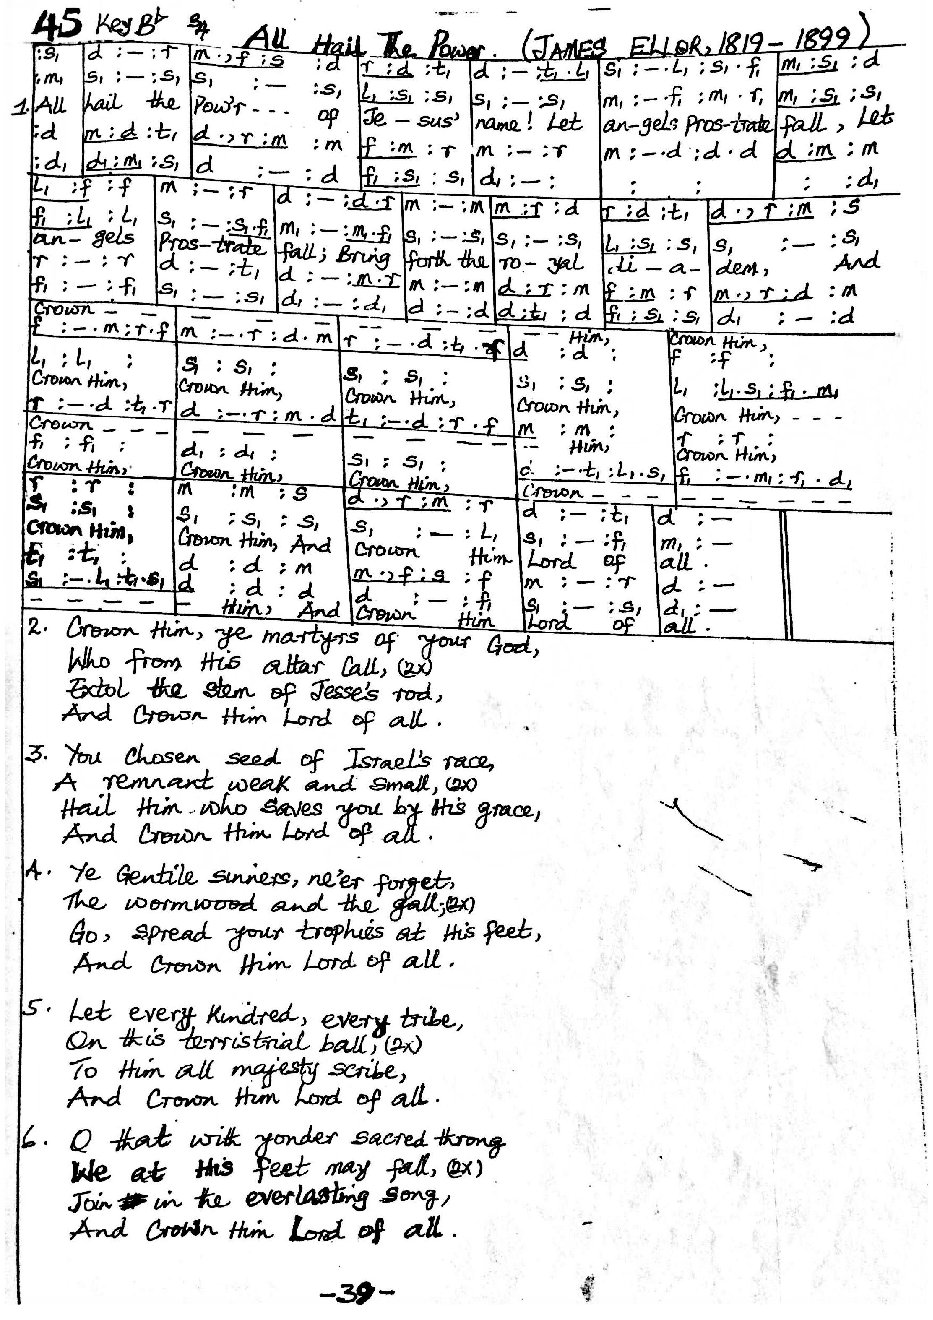 45 Key B♭ 3/4 All Hail The Power. (JAMES ELLOR, 1819 – 1899)
:s₁ | d : – : r | m ., f : s : d | r : d : t₁ | d : – : t₁ . l₁ | s₁ : – . l₁ : s₁ . f₁ | m₁ : s₁ : d
:m₁ | s₁ : – : s₁ | s₁ : – : s₁ | l₁ : s₁ : s₁ | s₁ : – : s₁ | m₁ : – . f₁ : m₁ . r₁ | m₁ : s₁ : s₁
1 All | hail the | Pow'r - - - of | Je – sus' | name! Let | an-gels Pros-trate | fall, Let
:d | m : d : t₁ | d ., r : m : m | f : m : r | m : – : r | m : – . d : d . d | d : m : m
:d₁ | d₁ : m₁ : s₁ | d : – : d | f₁ : s₁ : s₁ | d₁ : – : | : : | : : d₁
l₁ : f : f | m : – : r | d : – : d . r | m : – : m | m : r : d | r : d : t₁ | d ., r : m : s
f₁ : l₁ : l₁ | s₁ : – : s₁ . f₁ | m₁ : – : m₁ . f₁ | s₁ : – : s₁ | s₁ : – : s₁ | l₁ : s₁ : s₁ | s₁ : – : s₁
an- gels | Pros-trate | fall; Bring | forth the | ro- yal | di – a – | dem, And
r : – : r | d : – : t₁ | d : – : m . r | m : – : m | d : r : m | f : m : r | m ., r : d : m
f₁ : – : f₁ | s₁ : – : s₁ | d₁ : – : d₁ | d : – : d | d : t₁ : d | f₁ : s₁ : s₁ | d₁ : – : d
Crown – – – – – – – – – – – – Him, | Crown Him,
f : – . m : r . f | m : – . r : d . m | r : – . d : t₁ . f | d : d : | f : f :
l₁ : l₁ : | s₁ : s₁ : | s₁ : s₁ : | s₁ : s₁ : | l₁ : l₁ . s₁ : f₁ . m₁
Crown Him, | Crown Him, | Crown Him, | Crown Him, | Crown Him, - - -
r : – . d : t₁ . r | d : – . r : m . d | t₁ : – . d : r . f | m : m : | r : r :
Crown – – – – – – – – – – – – Him, | Crown Him,
f₁ : f₁ : | d₁ : d₁ : | s₁ : s₁ : | d : – . t₁ : l₁ . s₁ | f₁ : – . m₁ : r₁ . d₁
Crown Him, | Crown Him, | Crown Him, | Crown – – – – – – – –
r : r : | m : m : s | d ., r : m : r | d : – : t₁ | d : –
s₁ : s₁ : | s₁ : s₁ : s₁ | s₁ : – : l₁ | s₁ : – : f₁ | m₁ : –
Crown Him, | Crown Him, And | Crown Him | Lord of | all.
t₁ : t₁ : | d : d : m | m ., f : s : f | m : – : r | d : –
s₁ : – . l₁ : t₁ . s₁ | d : d : d | d : – : f₁ | s₁ : – : s₁ | d₁ : –
– – – – – – | – Him, And | Crown Him | Lord of | all.
2. Crown Him, ye martyrs of your God,
Who from His altar Call, (2x)
Extol the stem of Jesse's rod,
And Crown Him Lord of all.
3. You Chosen seed of Israel's race,
A remnant weak and small, (2x)
Hail Him who saves you by His grace,
And Crown Him Lord of all.
4. Ye Gentile sinners, ne'er forget,
The wormwood and the gall; (2x)
Go, spread your trophies at His feet,
And Crown Him Lord of all.
5. Let every kindred, every tribe,
On this terristrial ball, (2x)
To Him all majesty scribe,
And Crown Him Lord of all.
6. O that with yonder sacred throng
We at His feet may fall, (2x)
Join in the everlasting song,
And Crown Him Lord of all.
-39-